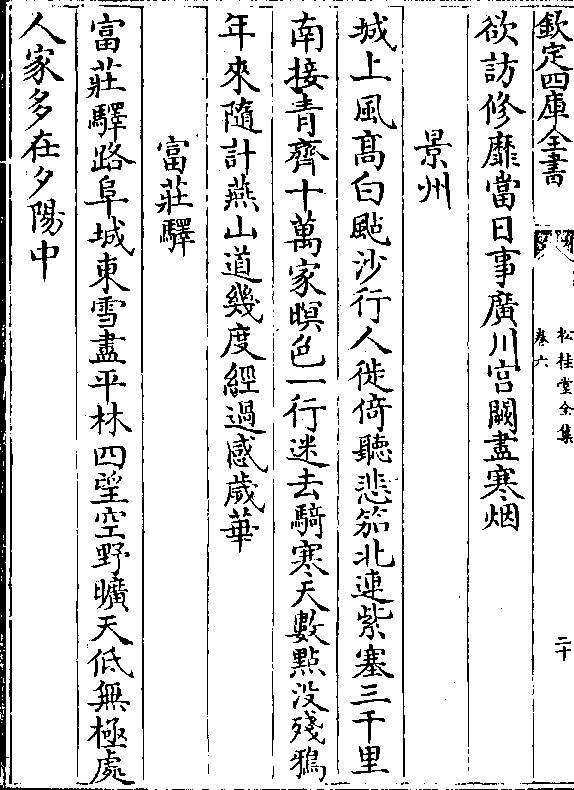 欽定四庫全書
松桂堂全集
卷六
二十
欲訪修靡當日事廣川宮闕盡寒烟
景州
城上風髙白颭沙行人徙倚聽悲笳北連紫塞三千里
南接青齊十萬家暝色一行迷去騎寒天數點没殘鴉
年來隨計燕山道幾度經過感歲華
富莊驛
富莊驛路阜城東雪盡平林四望空野曠天低無極處
人家多在夕陽中